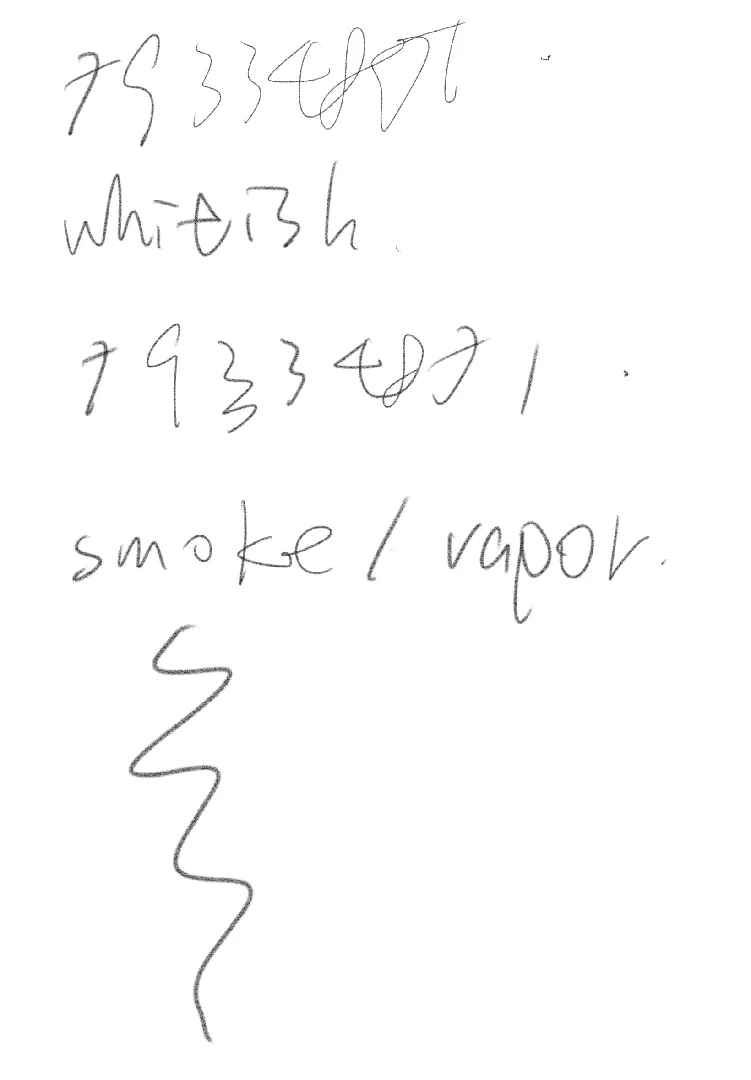 79334871
whitish.
79334871
smoke / vapor.